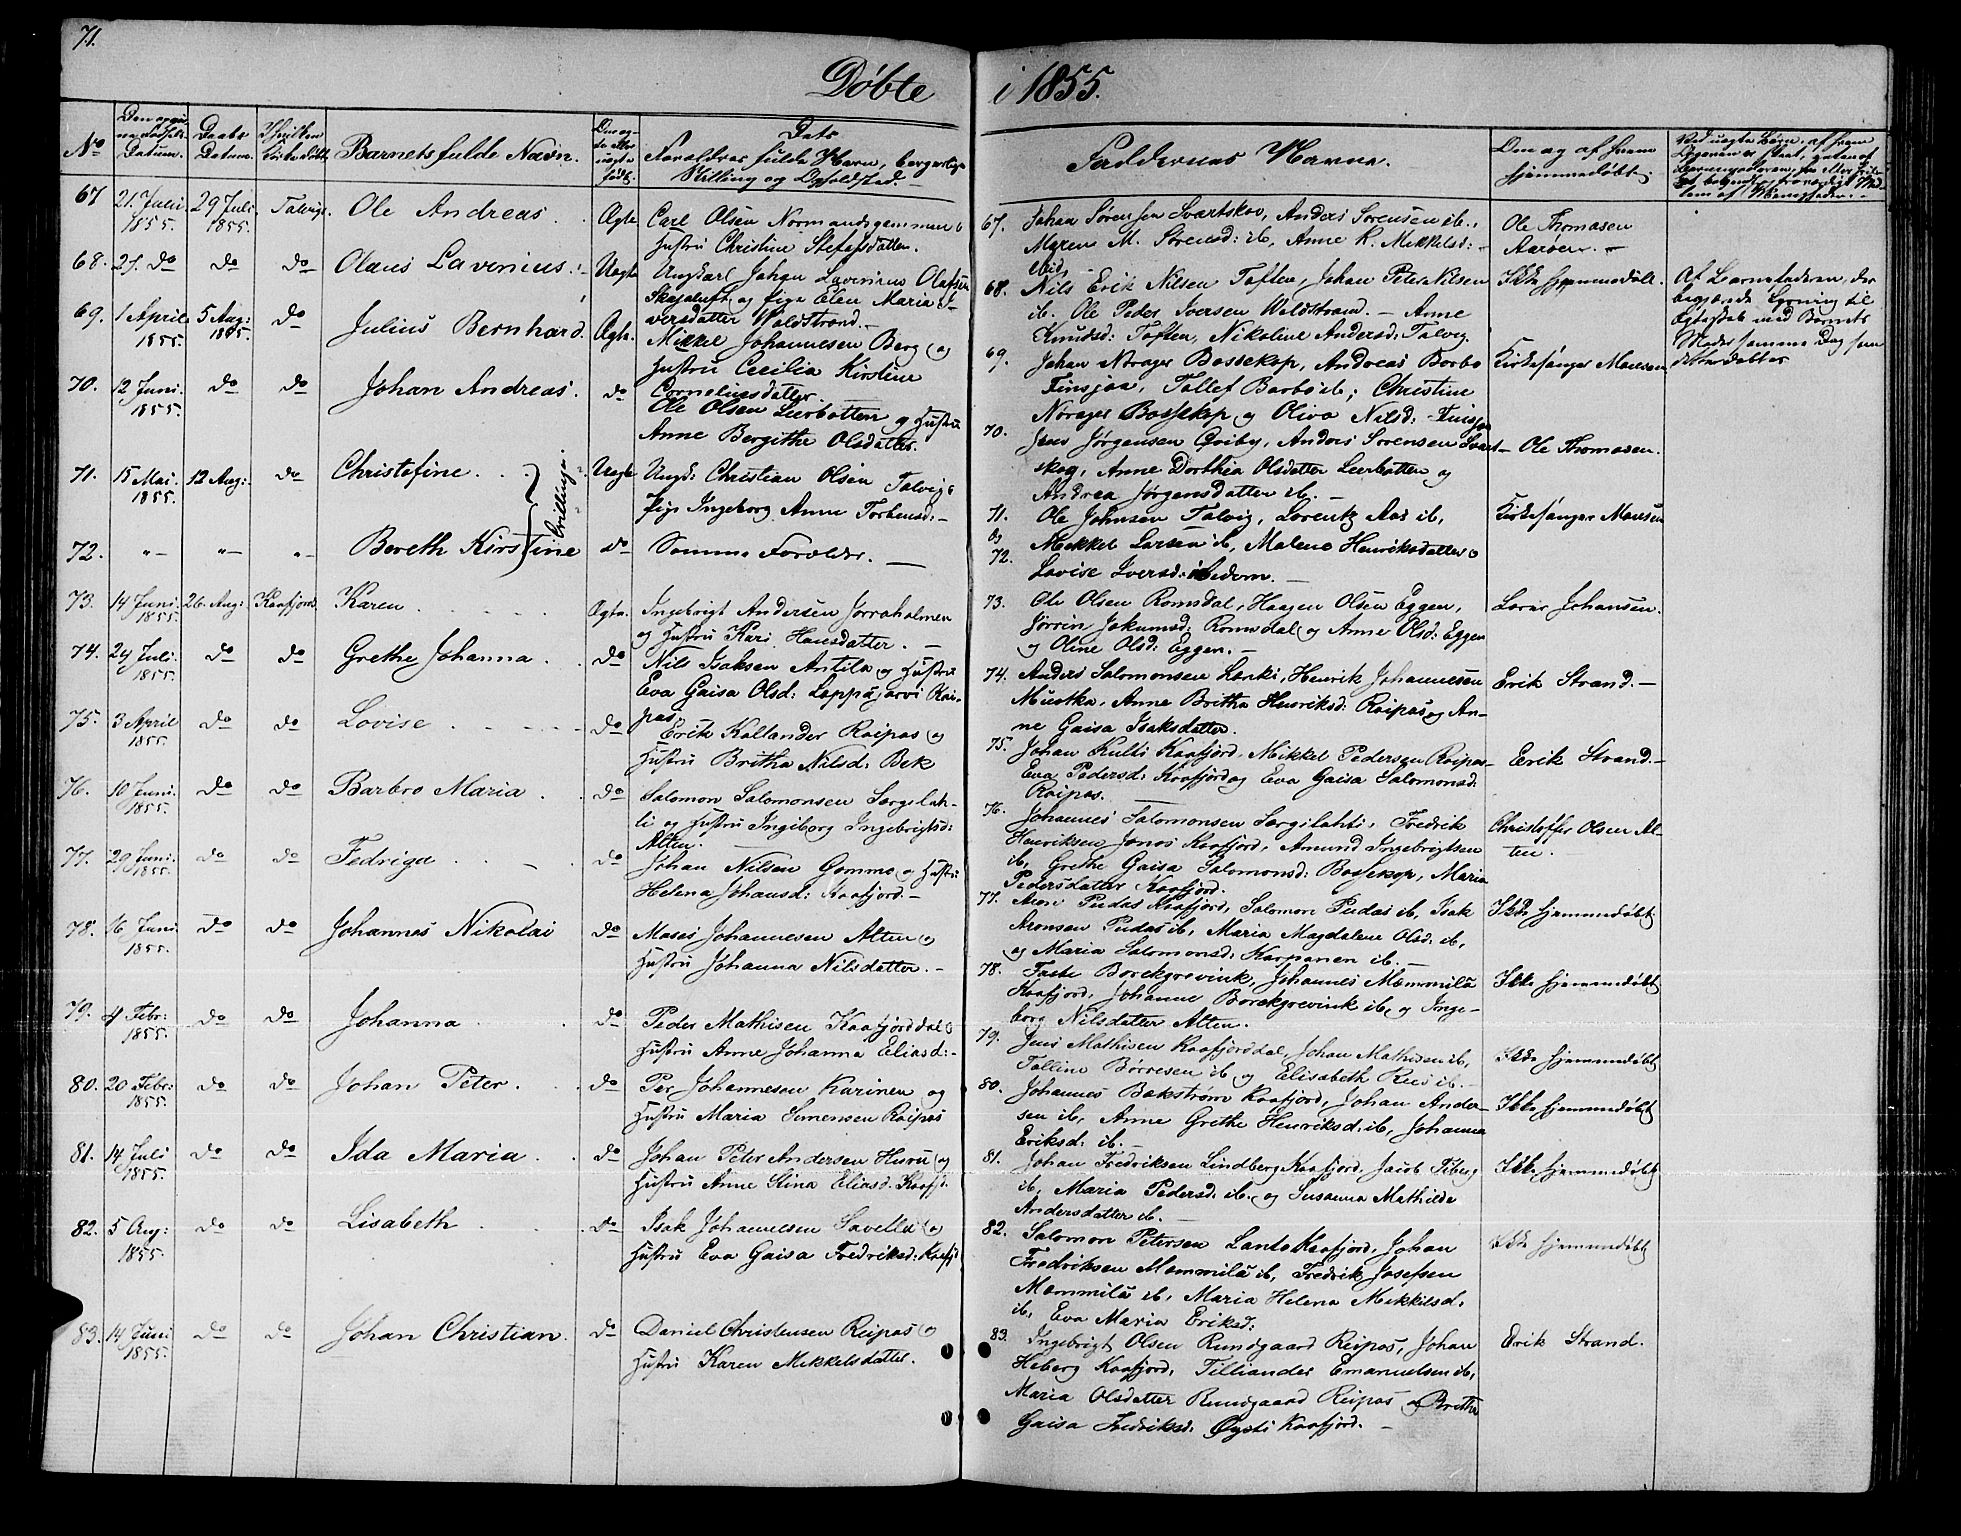 71.
Døbte
i 1855.
No
Datum.
Daabs Datum.
Barnets fulde Navn.
Stilling og Opholdssted.
Faddernes Navne.
hjemmedøbt.
67 21. Juli 1855. 29 Juli 1855. Talvig. Ole Andreas. Ægte
Carl Olsen Normandsgammen &
Hustru Christine Stefafsdatter.
68. 21. do do do Olaus Lavinius. Uegte
Ungkarl Johan Lavinius Olafsen
Skajaluft og pige Elen Maria I-
versdatter Waldstrand.
69. 1 April 1855. 5 Aug: 1855. do Julius Bernhard. Ægte.
Mikkel Johannesen Berg og
Hustru Cecilia Kirstine
Corneliusdatter.
70. 12 Juni. 1855. do do Johan Andreas. do
Ole Olsen Leerbotten og Hustru
Anne Bergithe Olsdatter.
71. 15 Mai. 1855. 12 Aug: do Christofine. Uegte
Tvillinge.
Ungk: Christian Olsen Talvig &
pige Ingeborg Anne Torbensd:
72. „ „ „ Bereth Kirstine do
Samme Forældre.
73. 14 Juni. 1855. 26. Aug: Kaafjord. Karen Ægte.
Ingebrigt Andersen Jorraholmen
og Hustru Kari Hansdatter.
74. 24 Juli. 1855. do do Grethe Johanna. do
Nils Isaksen Antila og Hustru
Eva Gaisa Olsd: Lappajarvi Rai-
pas.
75. 3 April 1855. do do Lovise do
Erik Kollander Raipas og
Hustru Britha Nilsd: Bek
76. 10 Juni. 1855. do do Barbro Maria. do
Salomon Salomonsen Særgilah-
ti og Hustru Ingiborg Ingebrigtsd:
Alten.
77. 29 Juni. 1855. do do Fedriga do
Johan Nilsen Gomme og Hustru
Helena Johansd: Kaafjord.
78. 16 Juni 1855. do do Johannes Nikolai do
Moses Johannesen Alten &
Hustru Johanna Nilsdatter.
79. 4 Febr: 1855. do do Johanna do
Peder Mathisen Kaafjorddal &
Hustru Anne Johanna Eliasd:
80. 20 Febr: 1855. do do Johan Peter. do
Per Johannesen Karinen og
Hustru Maria Simensen Raipas
81. 14 Juli 1855. do do Ida Maria. do
Johan Peter Andersen Huru og
Hustru Anne Stina Eliasd. Kaafj.
82. 5 Aug: 1855. do do Lisabeth do
Isak Johannesen Savella &
Hustru Eva Gaisa Fredriksd: Kaafj
83. 14 Juni 1855. do do Johan Christian. do
Daniel Christensen Reipas &
Hustru Karen Mikkelsdatter.
67. Johan Sørensen Svartskov, Anders Sorensen ib.,
Maren M. Sørensd: ib, Anne K. Mikkelsd:
ibid
Ole Thomasen
68. Nils Erik Nilsen Toften, Johan Peter Nilsen
ib. Ole Peder Iversen Waldstrand. Anne
Knudsd: Toften, Nikoline Andersd: Talvig.
Ikke hjemmedøbt.
Af Barnefaderen, der
begjærede Lysning til
Ægteskab med Barnets
Moder samme Dag som
det var døbt.
69. Johan Norager Bossekop, Andreas Barbo
Finsjaa, Tollef Barbo ib; Christine
Norager Bossekop og Oliva Nilsd:
Kirkesanger Mousen
70. Jens Jørgensen Qviby, Anders Sorensen Svart-
skog, Anne Dorthia Olsdatter Leerbotten og
Andrea Jørgensdatter ib.
Ole Thomasen.
71. Ole Johnsen Talvig, Lorentz Aas ib,
og
72. Mikkel Larsen ib, Malene Henriksdatter &
Lovise Iversd: ibidem.
Kirkesanger Mousen
73. Ole Olsen Romsdal, Haagen Olsen Eggen,
Jorrin Jakumsd: Romsdal og Anne Olsd: Eggen
og Oline Olsd: Eggen.
Lærer Johansen.
74. Anders Salomonsen Lanki, Henrik Johannesen
Muotka, Anne Britha Henriksd: Raipas og An-
ne Gaisa Isaksdatter.
Erik Strand.
75. Johan Kulti Kaafjord, Mikkel Pedersen Raipas
Eva Pedersd: Kaafjord og Eva Gaisa Salomonsd:
Raipas.
Erik Strand.
76. Johannes Salomonsen Særgilahti, Fredrik
Henriksen Jonos Kaafjord, Amund Ingebrigtsen
ib, Grethe Gaisa Salomonsd: Bossekop, Maria
Pedersdatter Kaafjord.
Christoffer Olsen Al-
ten.
77. Aron Pudas Kaafjord, Salomon Pudas ib, Isak
Aronsen Pudas ib, Maria Magdalene Olsd: ib,
og Maria Salomonsd: Karpanen ib.
Ikke hjemmedøbt
78. Taste Borckgrevink, Johannes Mommila
Kaafjord, Johanne Borckgrevink ib, og Inge-
borg Nilsdatter Alten.
Ikke hjemmedøbt
79. Jens Mathisen Kaafjorddal, Johan Mathisen ib,
Talline Børresen ib og Elisabeth Rus ib.
Ikke hjemmedøbt
80. Johannes Bakstrøm Kaafjord, Johan Ander-
sen ib, Anne Grethe Henriksd: ib, Johanna
Eriksd: ib.
Ikke hjemmedøbt
81. Johan Fredriksen Lindberg Kaafjord, Jacob Friberg
ib, Maria Pedersd: ib. og Susanna Mathilde
Andersdatter ib.
Ikke hjemmedøbt
82. Salomon Petersen Lanto Kaafjord, Johan
Fredriksen Mommila ib, Fredrik Josefsen
Mommila ib, Maria Helena Mikkelsd.
ib, Eva Maria Eriksd:
Ikke hjemmedøbt
83. Ingebrigt Olsen Rundgaard Reipas, Johan
Heberg Kaafjord, Tilliander Emanuelsen ib,
Maria Olsdatter Rundgaard Reipas og Britha
Gaisa Fredriksd: Øysti Kaafjord.
Erik Strand.